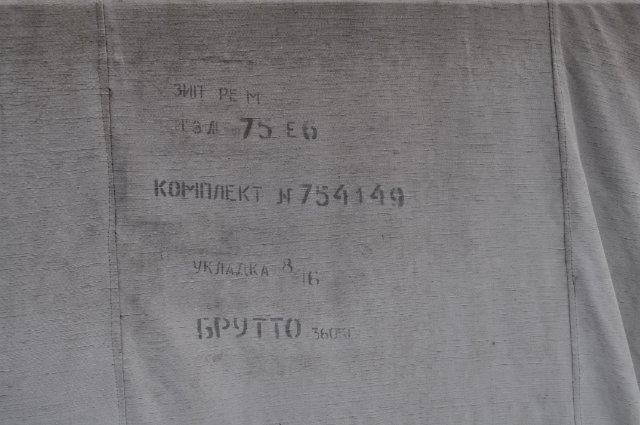 ЗИП РЕМ
75 Е6
КОМПЛЕКТ № 754149
УКЛАДКА 8/16
БРУТТО 360КГ